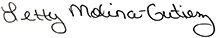 Letty Molina-Gutierrez